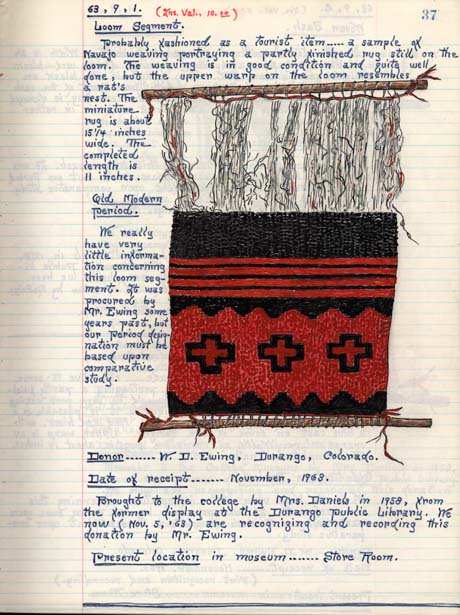 63, 9, 1. (Ins. Val., 10.00) 37
Loom Segment.
Probably fashioned as a tourist item..... a sample of
Navajo weaving portraying a partly finished rug still on the
loom. The weaving is in good condition and quite well
done, but the upper warp on the loom resembles
a rat's
nest. The
miniature
rug is about
15 1/4 inches
wide. The
completed
length is
11 inches.
Old Modern
period.
We really
have very
little informa-
tion concerning
this loom seg-
ment. It was
procured by
Mr. Ewing some
years past, but
our period desig-
nation must be
based upon
comparative
study.
Donor....... W. D. Ewing, Durango, Colorado.
Date of receipt....... November, 1963.
Brought to the college by Mrs. Daniels in 1958, from
the former display at the Durango Public Library. We
now (Nov. 5, '63) are recognizing and recording this
donation by Mr. Ewing.
Present location in museum...... Store Room.